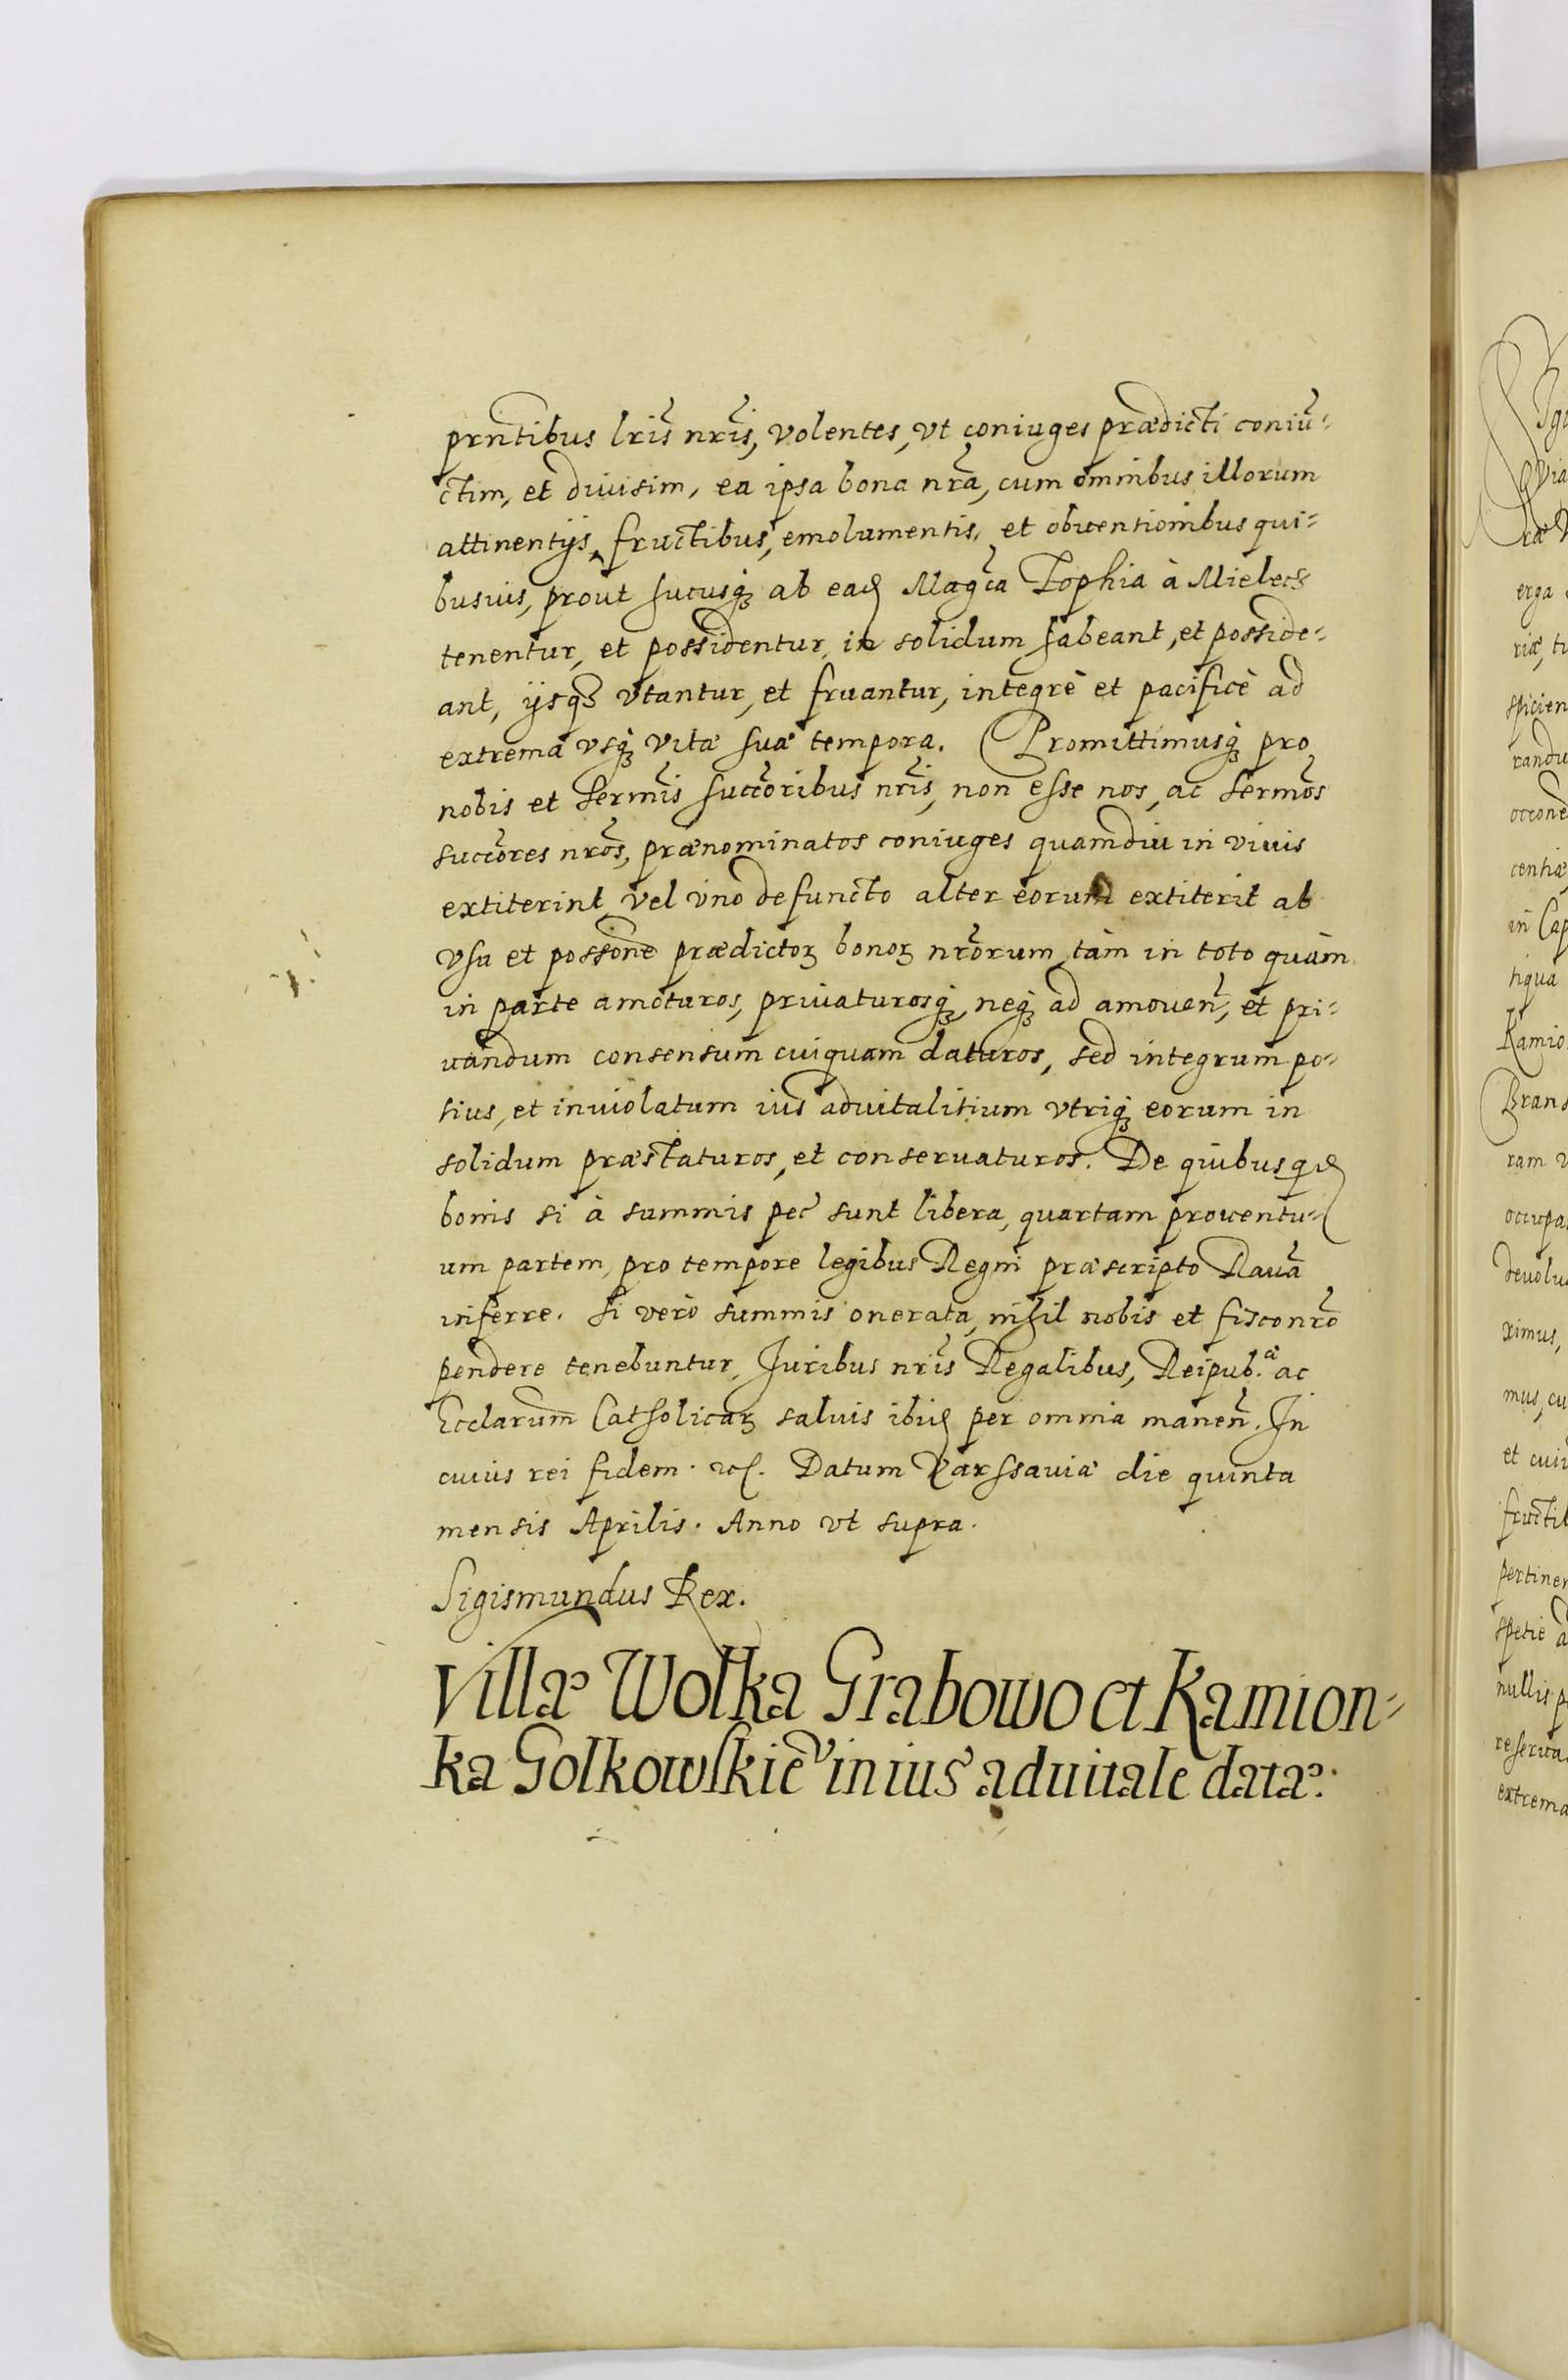 prntibus lris nris, volentes, vt coniuges prædicti coniu-
ctim, et diuisim, ea ipsa bona nra, cum omnibus illorum
attinentijs, fructibus, emolumentis, et obuentionibus qui-
busuis, prout hucusq; ab ead Magca Zophia à Mielecz
tenentur, et possidentur, in solidum habeant, et posside-
ant, ijsq; vtantur, et fruantur, integrè et pacificè ad
extrema vsq; vitæ suæ tempora. Promittimusq; pro
nobis et Sermis succoribus nris, non esse nos, ac Sermos
succores nros, prænominatos coniuges quamdiu in viuis
extiterint, vel vno defuncto alter eorum extiterit ab
vsu et possone prædictoꝝ bonoꝝ nrorum, tàm in toto quàm
in parte amoturos, priuaturosq;, neq; ad amouen, et pri-
uandum consensum cuiquam daturos, sed integrum po-
tius, et inuiolatum ius aduitalitium vtriq; eorum in
solidum præstaturos, et conseruaturos. De quibus qd
bonis si à summis pec sunt libera, quartam prouentu-
um partem, pro tempore legibus Regni præscripto Rauã
inferre. Si verò summis onerata, nihil nobis et fisco nro
pendere tenebuntur, Juribus nris Regalibus, Reipub.ᵃᵉ ac
Ecclarum Catholicaꝝ saluis ibid per omnia manen. In
cuius rei fidem. etc. Datum Varssauiæ die quinta
mensis Aprilis. Anno vt supra.
Sigismundus Rex.
Villæ Wolka Grabowo et Kamion-
ka Golkowskie in ius aduitale datæ.
erga
Kamio
extrema